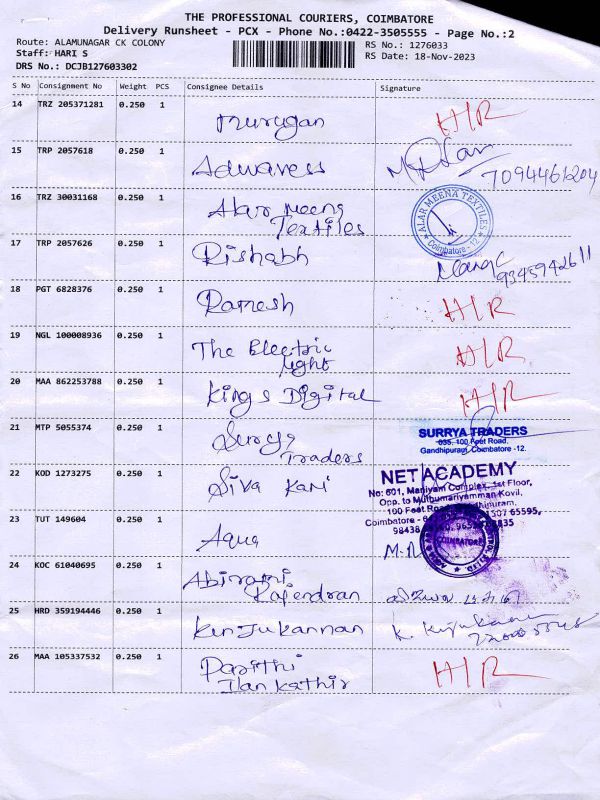 THE PROFESSIONAL COURIERS, COIMBATORE
Delivery Runsheet - PCX - Phone No.:0422-3505555 - Page No.:2
Route: ALAMUNAGAR CK COLONY RS No.: 1276033
Staff: HARI S RS Date: 18-Nov-2023
DRS No.: DCJB127603302
S No Consignment No Weight PCS Consignee Details Signature
14 TRZ 205371281 0.250 1 Murugan H/R
15 TRP 2057618 0.250 1 Adwaress
7094461204
16 TRZ 30031168 0.250 1 Alar Meena
Textiles
ALAR MEENA TEXTILES
Coimbatore - 12
17 TRP 2057626 0.250 1 Rishabh
18 PGT 6828376 0.250 1 Ramesh H/R
19 NGL 100008936 0.250 1 The Electric
light H/R
20 MAA 862253788 0.250 1 Kings Digital H/R
21 MTP 5055374 0.250 1 Surya
Traders
SURRYA TRADERS
635, 100 Feet Road,
Gandhipuram, Coimbatore -12.
22 KOD 1273275 0.250 1 Siva Kani
NET ACADEMY
No: 601, Maniyam Complex, 1st Floor,
Opp. to Muthumariyamman Kovil,
100 Feet Road, Gandhipuram,
Coimbatore -
23 TUT 149604 0.250 1 Aqua
COIMBATORE
24 KOC 61040695 0.250 1 Abirami
Rajendran
25 HRD 359194446 0.250 1 Kenjukannan
26 MAA 105337532 0.250 1 Parithi
Ilan Kathir H/R